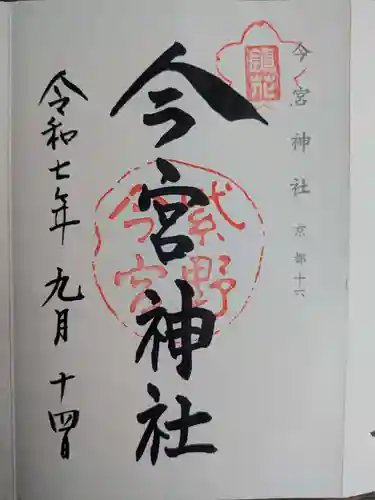 今宮神社
京都十六
鎮花
今宮神社
紫野
今宮
令和七年 九月 十四日